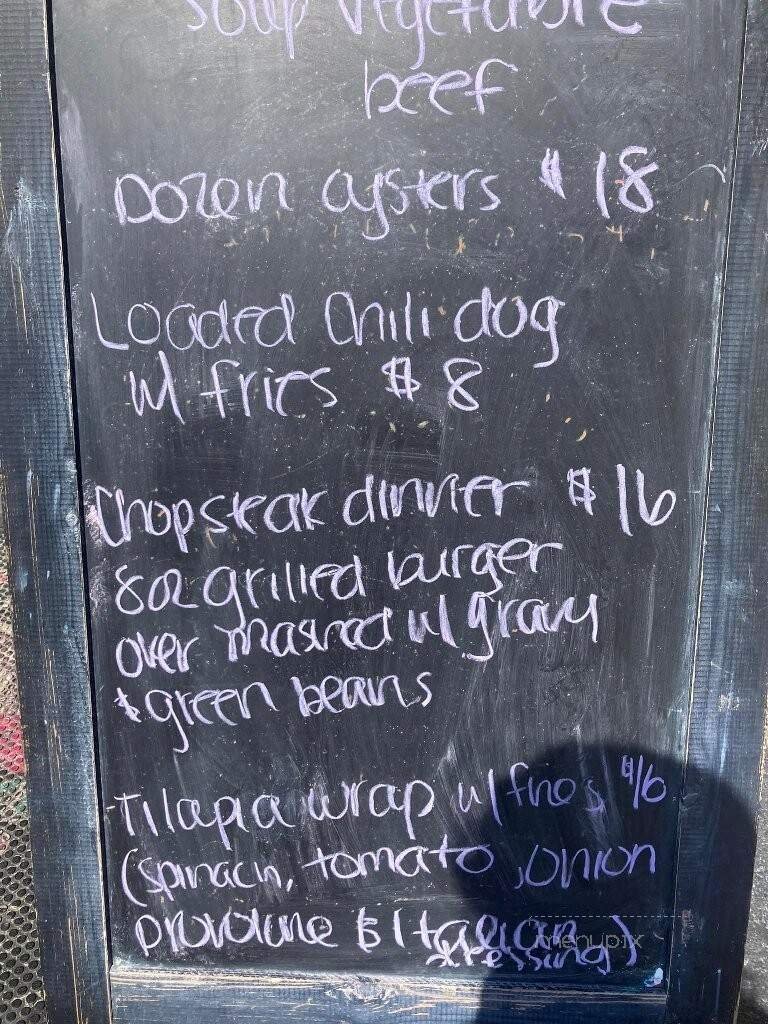 soup vegetable
beef
Dozen oysters $18
Loaded Chili dog
w/ fries $8
Chopsteak dinner $16
8oz grilled burger
over mashed w/ gravy
& green beans
Tilapia wrap w/ fries $16
(spinach, tomato, onion
provolone & Italian
dressing)
menupix